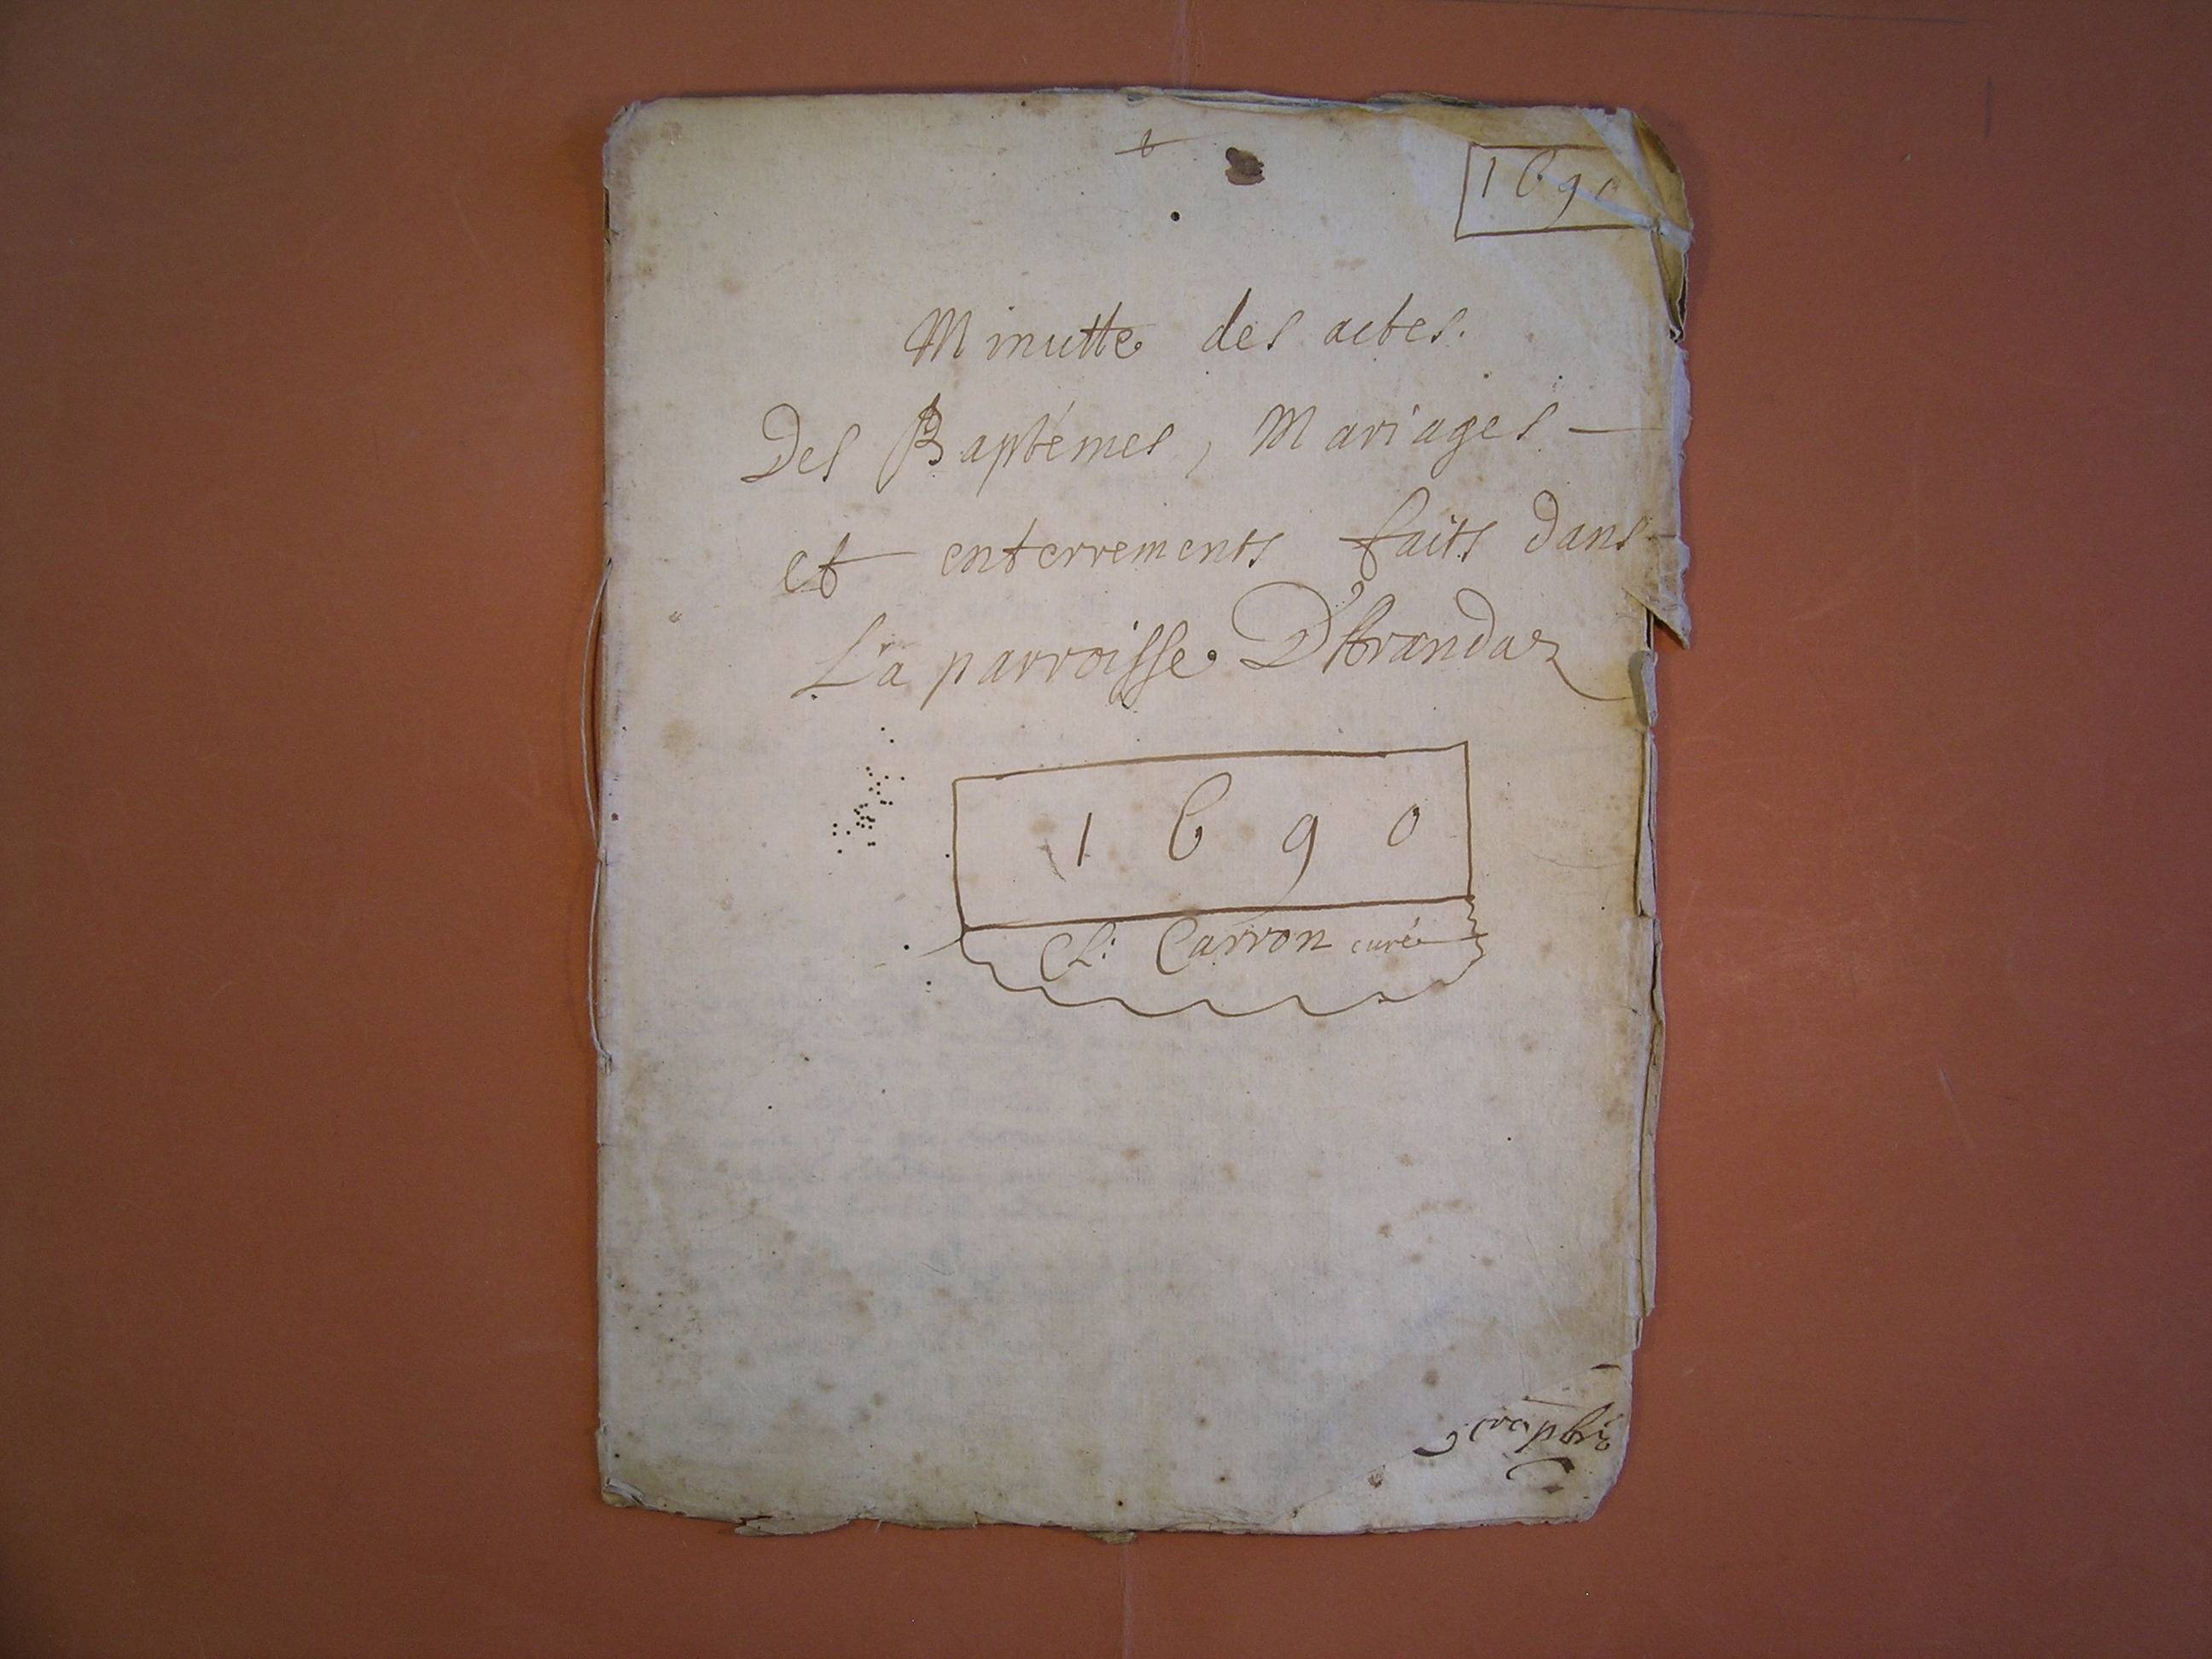 1690
Minutte des actes.
Des Baptêmes, Mariages
et enterrements faits dans
La parroisse D'Arandaz
1690
Cl: Carron curé